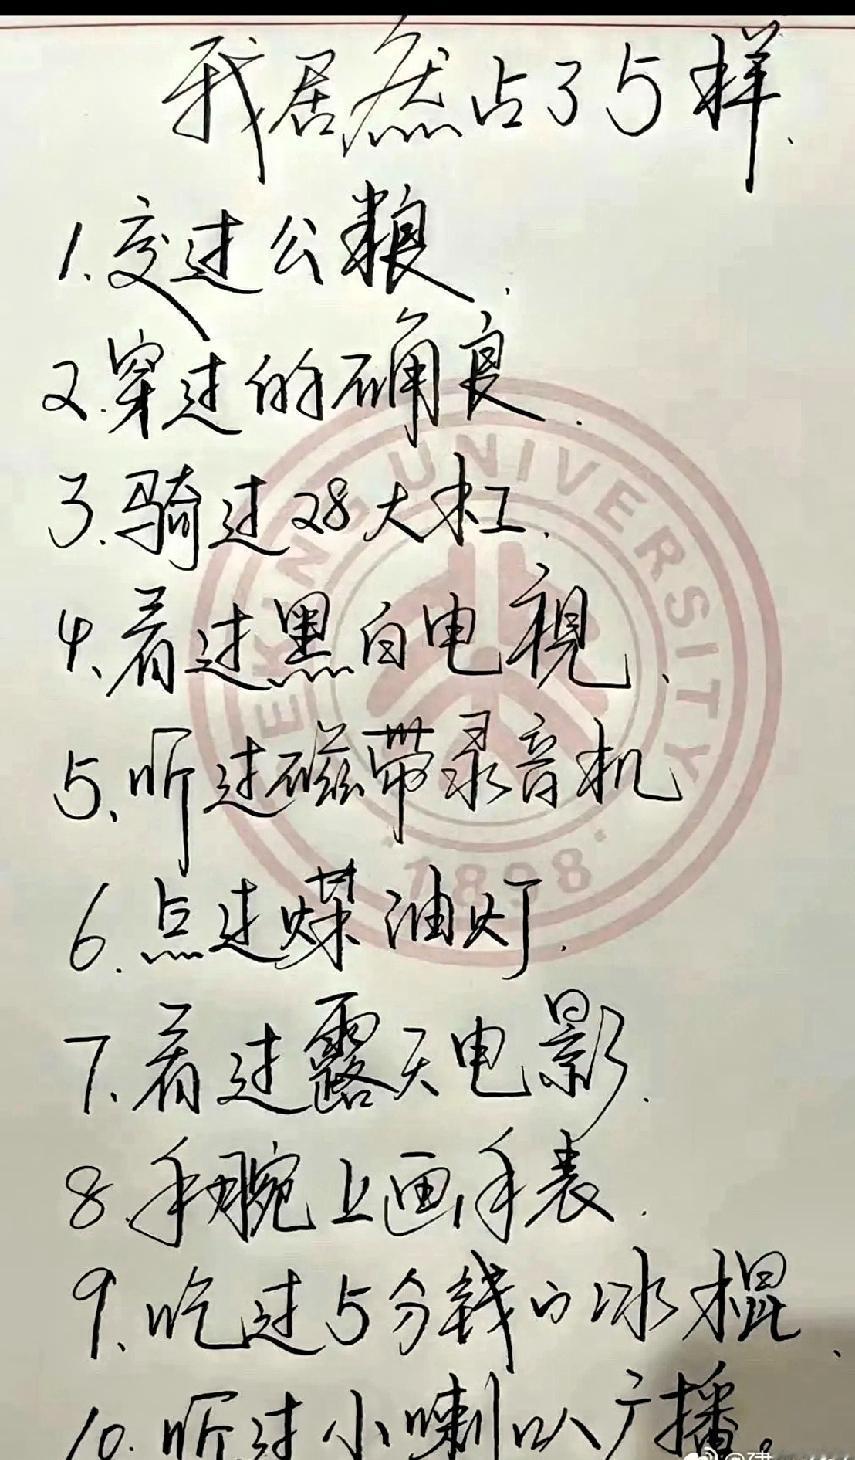 我居然占了5样.
1.交过公粮.
2.穿过的确良.
3.骑过28大杠.
4.看过黑白电視.
5.听过磁带录音机
6.点过煤油灯.
7.看过露天电影.
8.手腕上画手表.
9.吃过5分钱的冰棍.
10.听过小喇叭广播。
EKING UNIVERSITY
1898